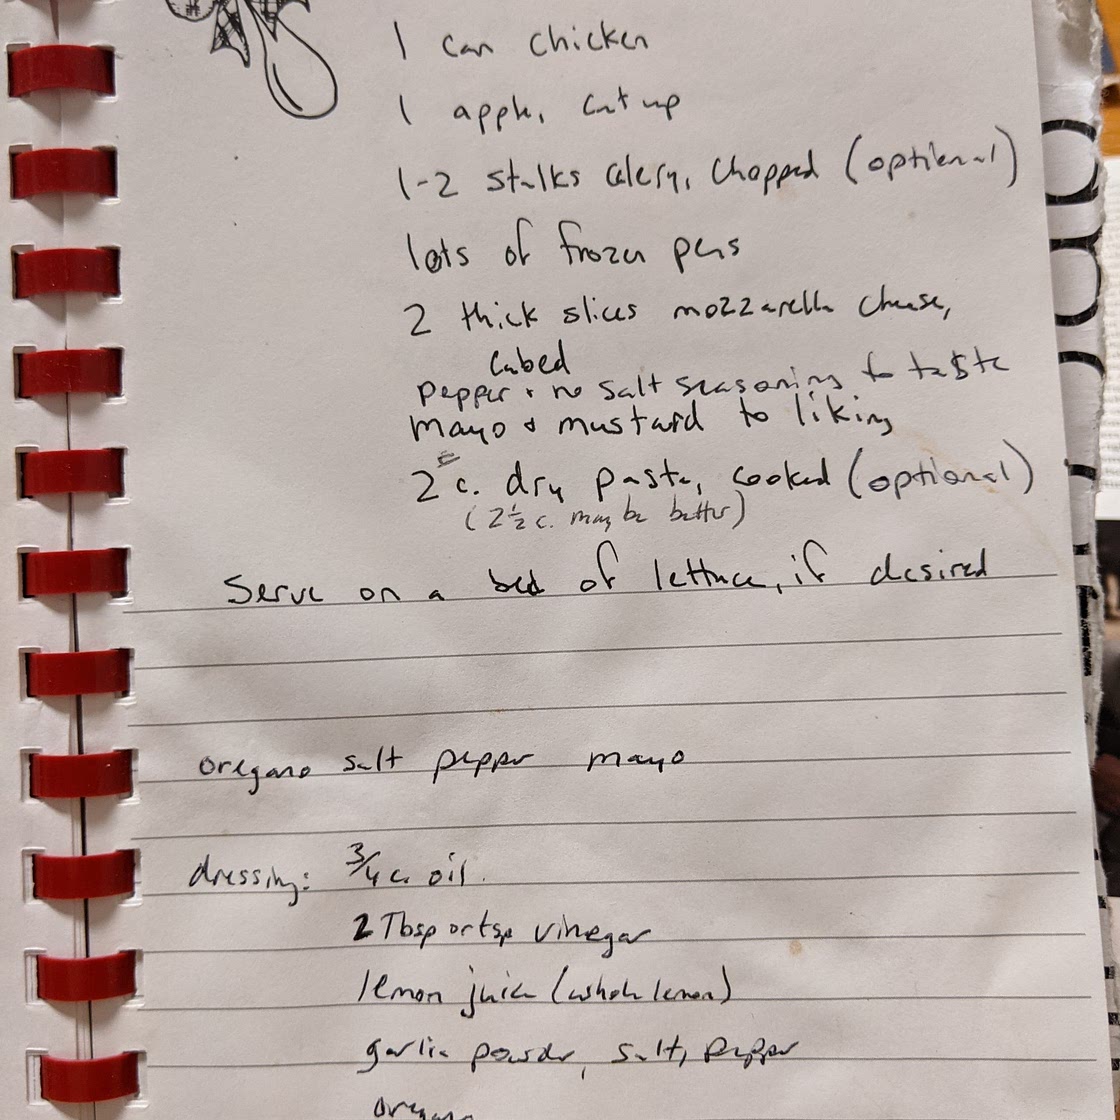 1 can chicken
1 apple, cut up
1-2 stalks celery, chopped (optional)
lots of frozen peas
2 thick slices mozzarella cheese,
cubed
pepper + no salt seasoning to taste
mayo & mustard to liking
2 c. dry pasta, cooked (optional)
(2½ c. may be better)
Serve on a bed of lettuce, if desired
oregano salt pepper mayo
dressing: ¾ c. oil
2 Tbsp or tsp vinegar
lemon juice (whole lemon)
garlic powder, salt, pepper
oregano